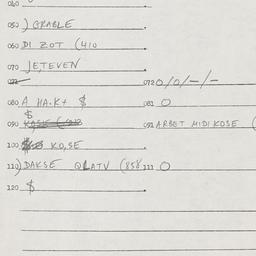 040
050 ) GRABLE
060 DI ZOT (410
070 JETEVEN
072 0/0/-/-
080 A HA.K+ $ 081 O
$
090 091 ARBET MIDI KOSE (
100 KO,SE
110 ) DAKSE QLATV (858 111 O
120 $